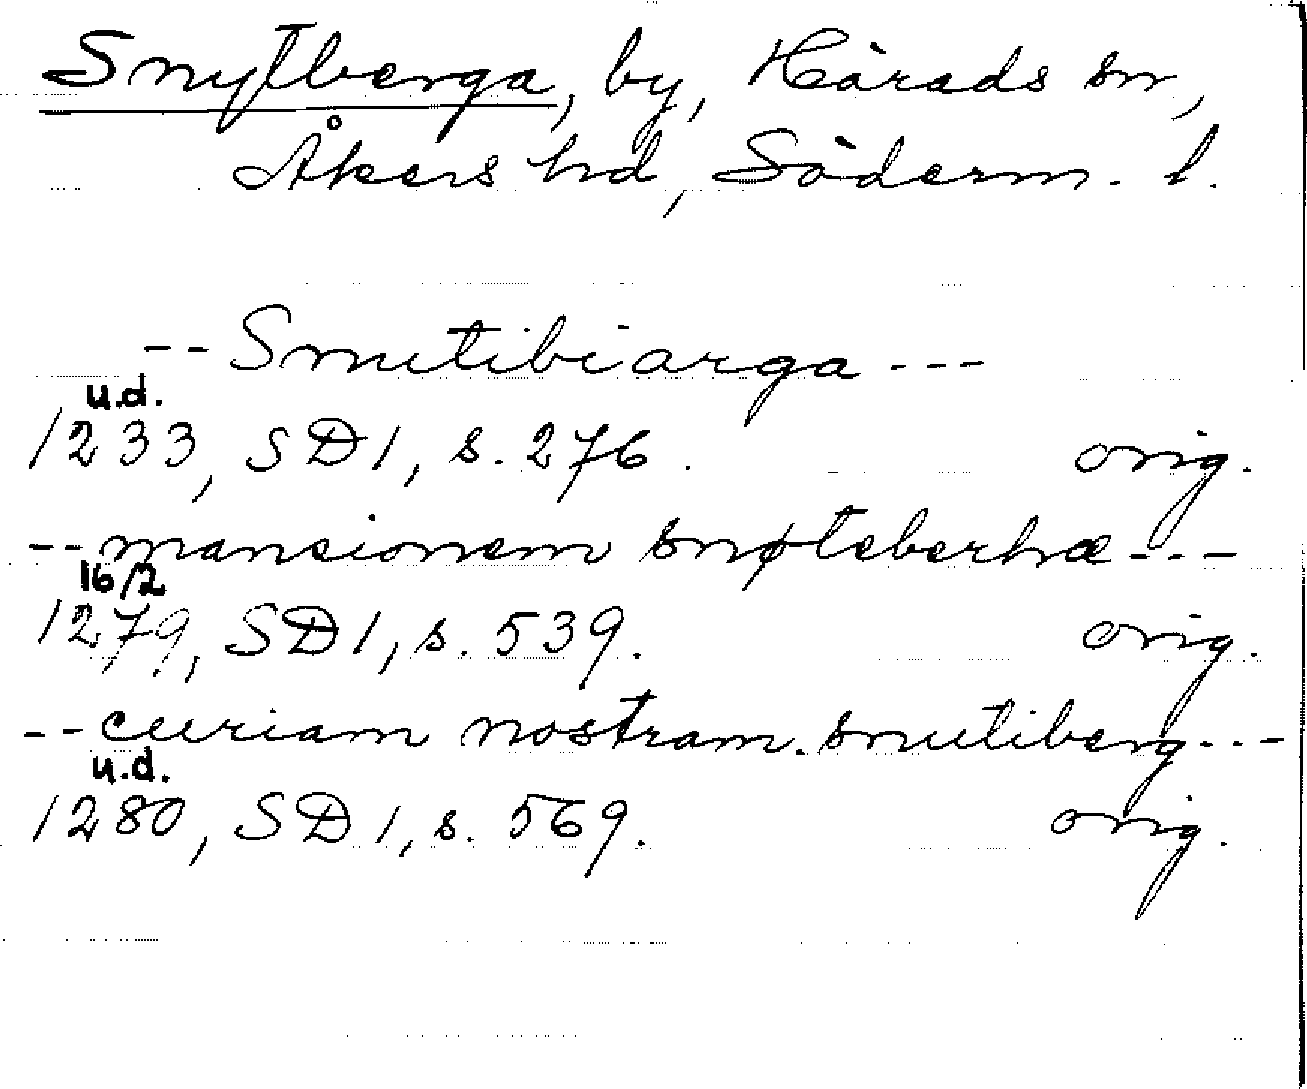 Snytberga, by, Härads sn,
Åkers hd, Söderm. l.
-- Snutibiarga ---
u.d.
1233, SD 1, s. 276. orig.
-- mansionem snøteberhæ ---
16/2
1279, SD 1, s. 539. orig.
-- curiam nostram. snutiberg ---
u.d.
1280, SD 1, s. 569. orig.